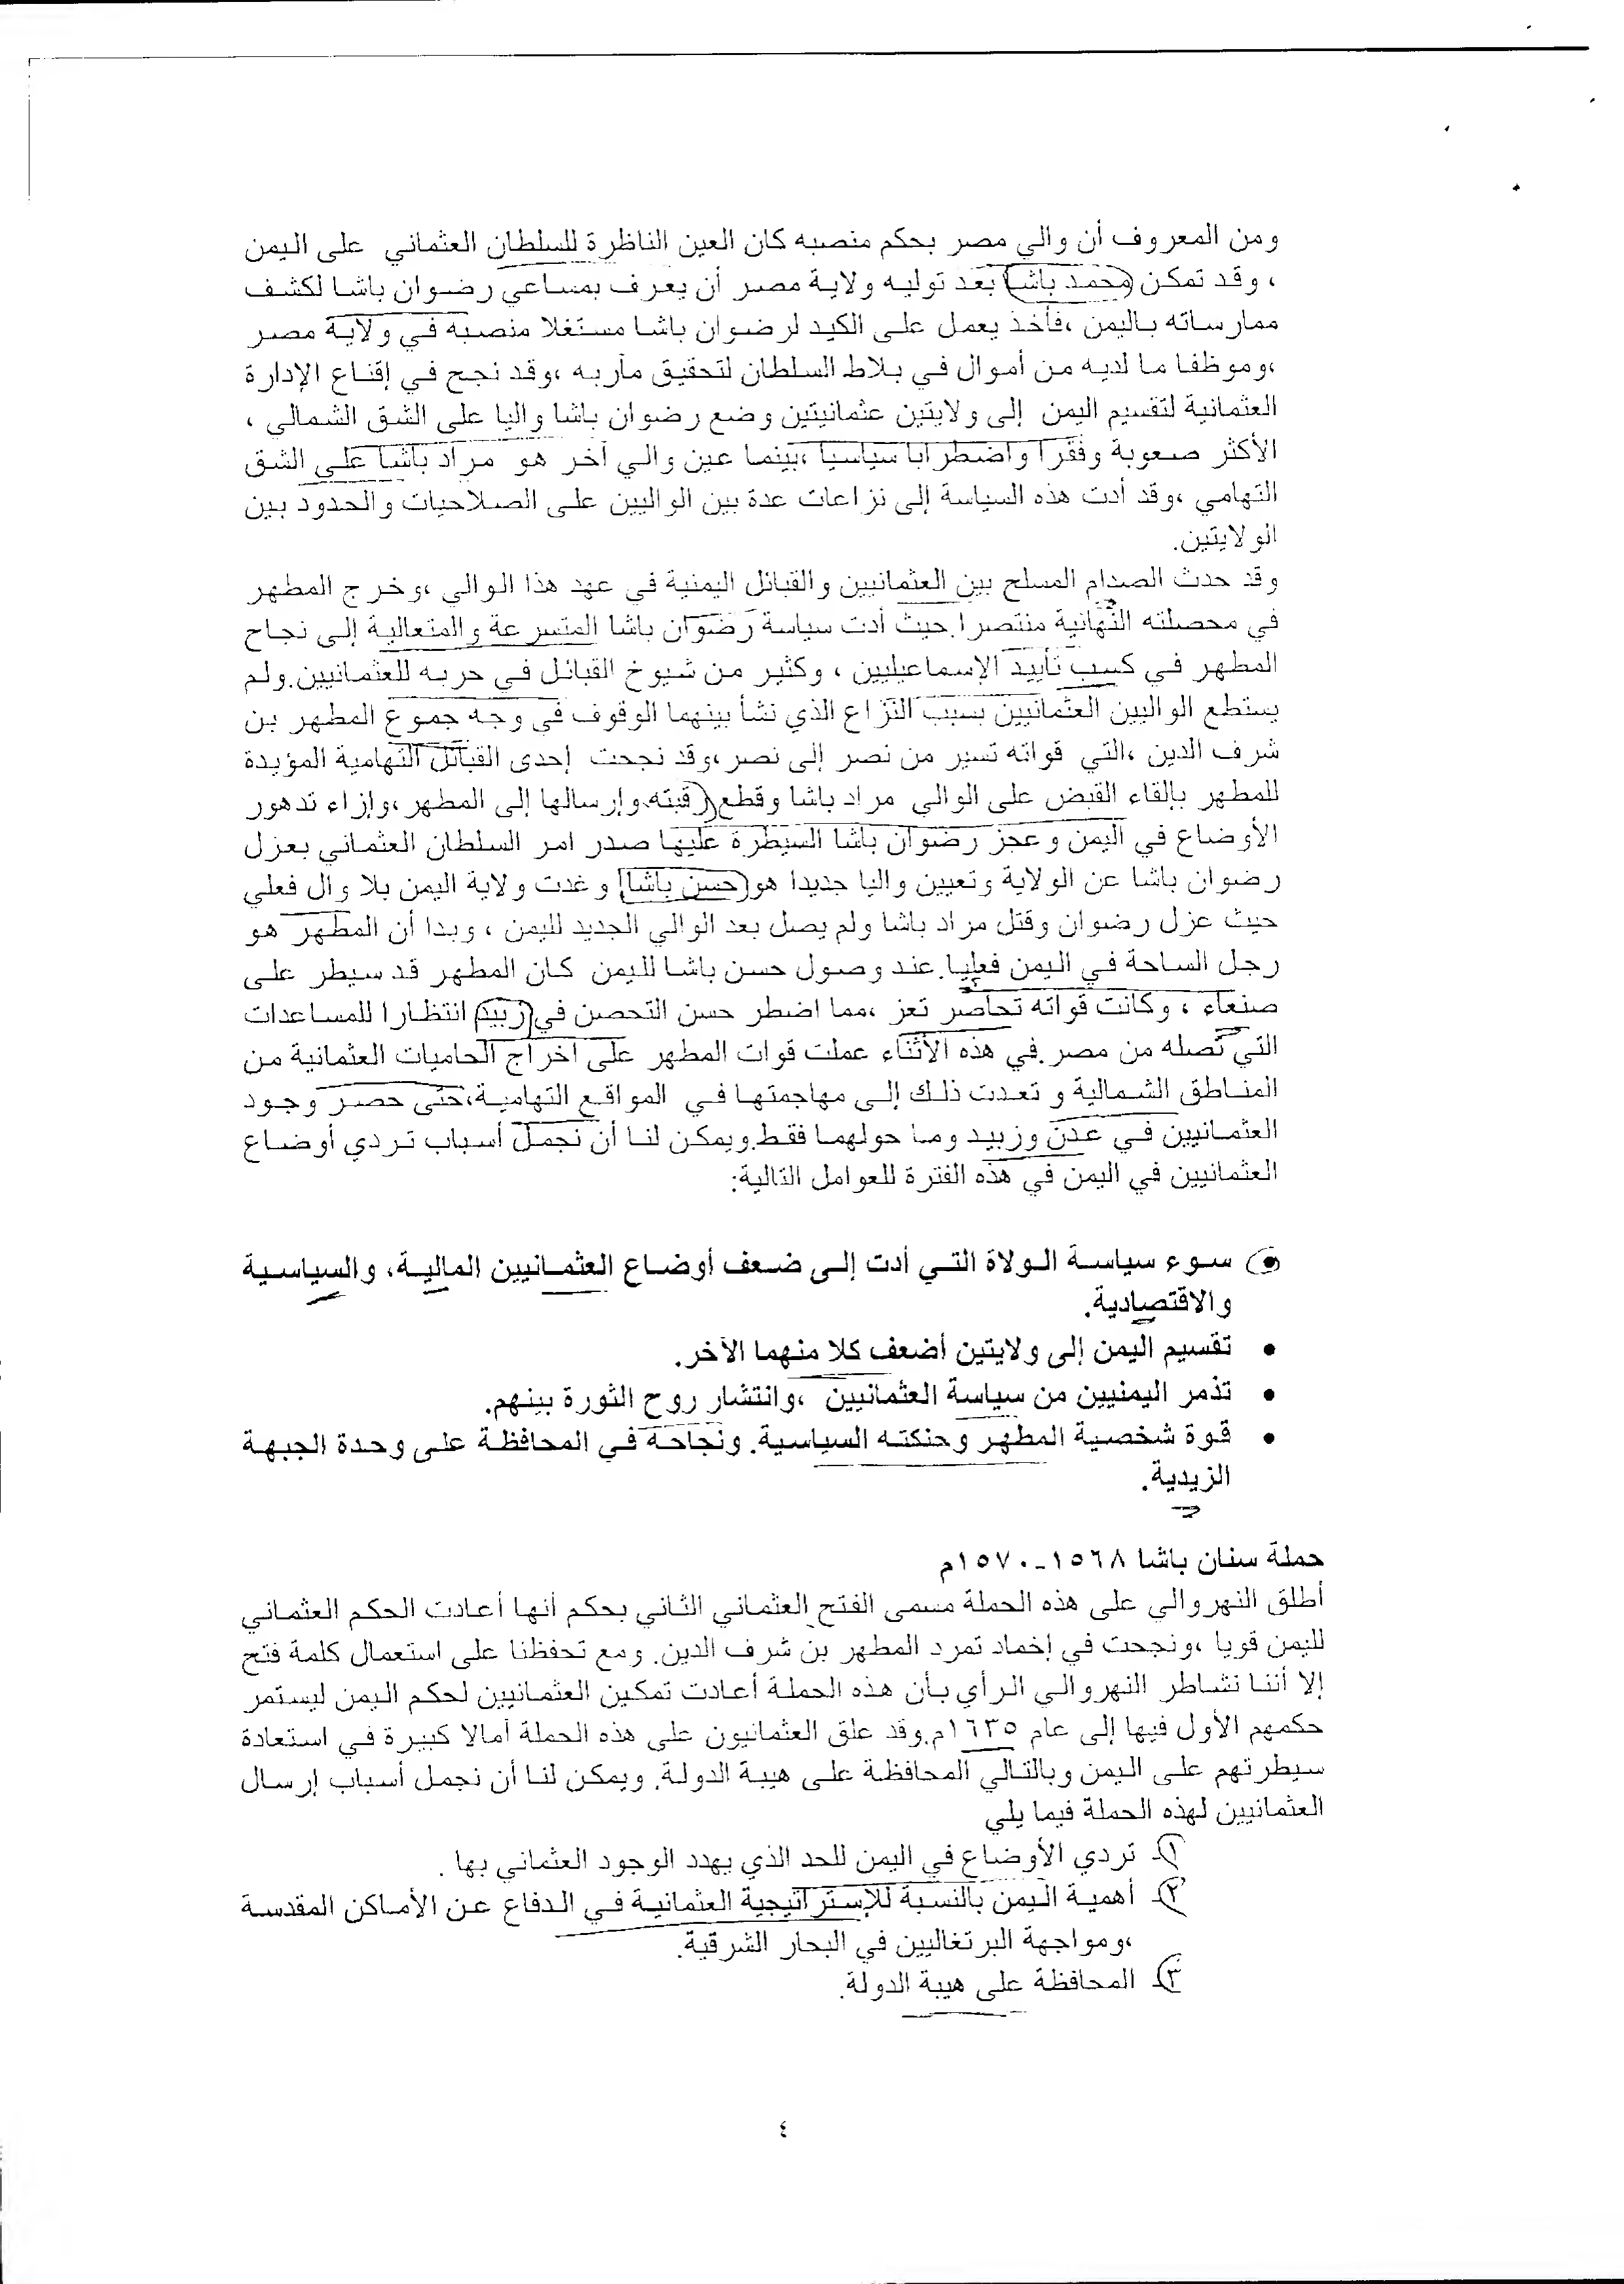 ومن المعروف أن والي مصر بحكم منصبه كان العين الناظرة للسلطان العثماني على اليمن
، وقد تمكن (محمد باشا) بعد توليه ولاية مصر أن يعرف بمساعي رضوان باشا لكشف
ممارساته باليمن ،فأخذ يعمل على الكيد لرضوان باشا مستغلا منصبه في ولاية مصر
،وموظفا ما لديه من أموال في بلاط السلطان لتحقيق مآربه ،وقد نجح في إقناع الإدارة
العثمانية لتقسيم اليمن إلى ولايتين عثمانيتين وضع رضوان باشا واليا على الشق الشمالي ،
الأكثر صعوبة وفقرا واضطرابا سياسيا ،بينما عين والي آخر هو مراد باشا على الشق
التهامي ،وقد أدت هذه السياسة إلى نزاعات عدة بين الواليين على الصلاحيات والحدود بين
الولايتين.
وقد حدث الصدام المسلح بين العثمانيين والقبائل اليمنية في عهد هذا الوالي ،وخرج المطهر
في محصلته النهائية منتصرا. حيث أدت سياسة رضوان باشا المتسرعة والمتعالية إلى نجاح
المطهر في كسب تأييد الإسماعيليين ، وكثير من شيوخ القبائل في حربه للعثمانيين. ولم
يستطع الواليين العثمانيين بسبب النزاع الذي نشأ بينهما الوقوف في وجه جموع المطهر بن
شرف الدين ،التي قواته تسير من نصر إلى نصر ،وقد نجحت إحدى القبائل التهامية المؤيدة
للمطهر بإلقاء القبض على الوالي مراد باشا وقطع رقبته وإرسالها إلى المطهر ،وإزاء تدهور
الأوضاع في اليمن وعجز رضوان باشا السيطرة عليها صدر امر السلطان العثماني بعزل
رضوان باشا عن الولاية وتعيين واليا جديدا هو (حسن باشا) وغدت ولاية اليمن بلا وال فعلي
حيث عزل رضوان وقتل مراد باشا ولم يصل بعد الوالي الجديد لليمن ، وبدا أن المطهر هو
رجل الساحة في اليمن فعليا. عند وصول حسن باشا لليمن كان المطهر قد سيطر على
صنعاء ، وكانت قواته تحاصر تعز ،مما اضطر حسن التحصن في (زبيد) انتظارا للمساعدات
التي تصله من مصر. في هذه الأثناء عملت قوات المطهر على اخراج الحاميات العثمانية من
المناطق الشمالية و تعدت ذلك إلى مهاجمتها في المواقع التهامية، حتى حصر وجود
العثمانيين في عدن وزبيد وما حولهما فقط. ويمكن لنا أن نجمل أسباب تردي أوضاع
العثمانيين في اليمن في هذه الفترة للعوامل التالية:
• سوء سياسة الولاة التي أدت إلى ضعف أوضاع العثمانيين المالية، والسياسية
والاقتصادية.
• تقسيم اليمن إلى ولايتين أضعف كلا منهما الآخر.
• تذمر اليمنيين من سياسة العثمانيين ،وانتشار روح الثورة بينهم.
• قوة شخصية المطهر وحنكته السياسية. ونجاحه في المحافظة على وحدة الجبهة
الزيدية.
حملة سنان باشا ١٥٦٨-١٥٧٠م
أطلق النهروالي على هذه الحملة مسمى الفتح العثماني الثاني بحكم أنها أعادت الحكم العثماني
لليمن قويا ،ونجحت في إخماد تمرد المطهر بن شرف الدين. ومع تحفظنا على استعمال كلمة فتح
إلا أننا نشاطر النهروالي الرأي بأن هذه الحملة أعادت تمكين العثمانيين لحكم اليمن ليستمر
حكمهم الأول فيها إلى عام ١٦٣٥م. وقد علق العثمانيون على هذه الحملة أمالا كبيرة في استعادة
سيطرتهم على اليمن وبالتالي المحافظة على هيبة الدولة. ويمكن لنا أن نجمل أسباب إرسال
العثمانيين لهذه الحملة فيما يلي
١- تردي الأوضاع في اليمن للحد الذي يهدد الوجود العثماني بها .
٢- أهمية اليمن بالنسبة للإستراتيجية العثمانية في الدفاع عن الأماكن المقدسة
،ومواجهة البرتغاليين في البحار الشرقية.
٣- المحافظة على هيبة الدولة.
٤